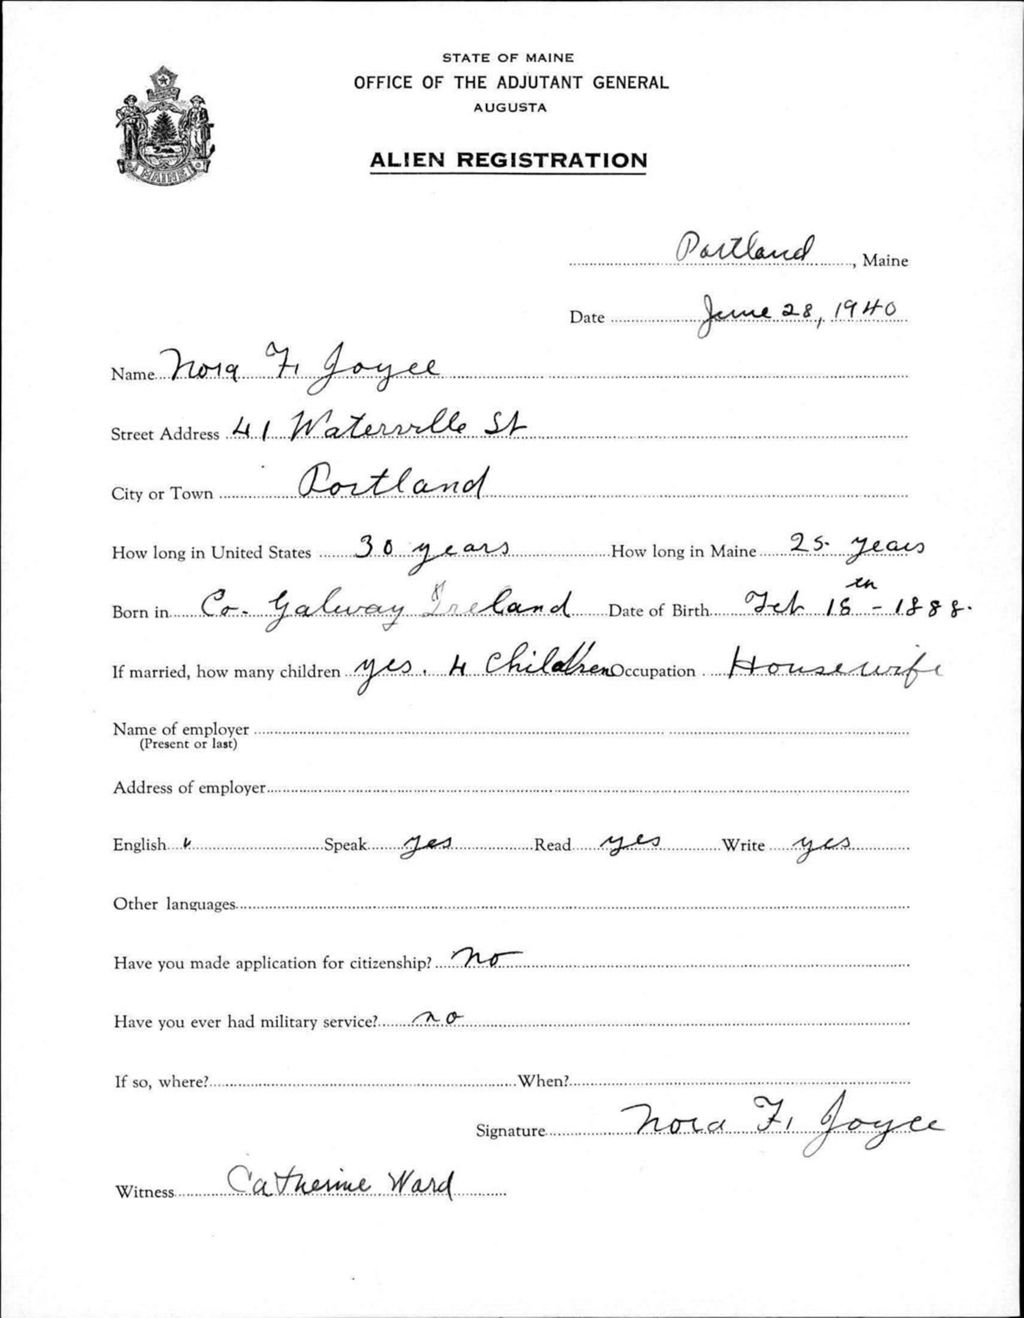 STATE OF MAINE
OFFICE OF THE ADJUTANT GENERAL
AUGUSTA
ALIEN REGISTRATION
MAINE
Portland, Maine
Date June 28, 1940
Name Nora F. Joyce
Street Address 41 Waterville St
City or Town Portland
How long in United States 30 years How long in Maine 25 years
Born in Co. Galway Ireland Date of Birth Feb 18th - 1888.
If married, how many children yes. 4 Children Occupation Housewife
Name of employer
(Present or last)
Address of employer
English Speak yes Read yes Write yes
Other languages
Have you made application for citizenship? No
Have you ever had military service? no
If so, where? When?
Signature Nora F. Joyce
Witness Catherine Ward